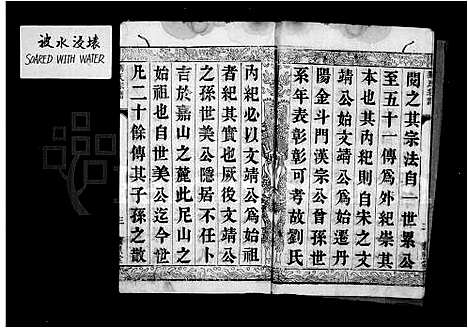 被水浸壊
SOARED WITH WATER
閱之其宗法自一世累公
至五十一傳爲外紀崇其
本也其內紀則自宋之文
靖公始文靖公始遷丹
陽金斗門漢宗公晉孫世
系年表彰彰可考故劉氏
內紀必以文靖公爲始祖
者紀其實也厥後文靖公
之孫世美公隱居不仕卜
吉於嘉山之麓此尼山之
始也自世美公迄今世
凡二十餘傳其子孫之散